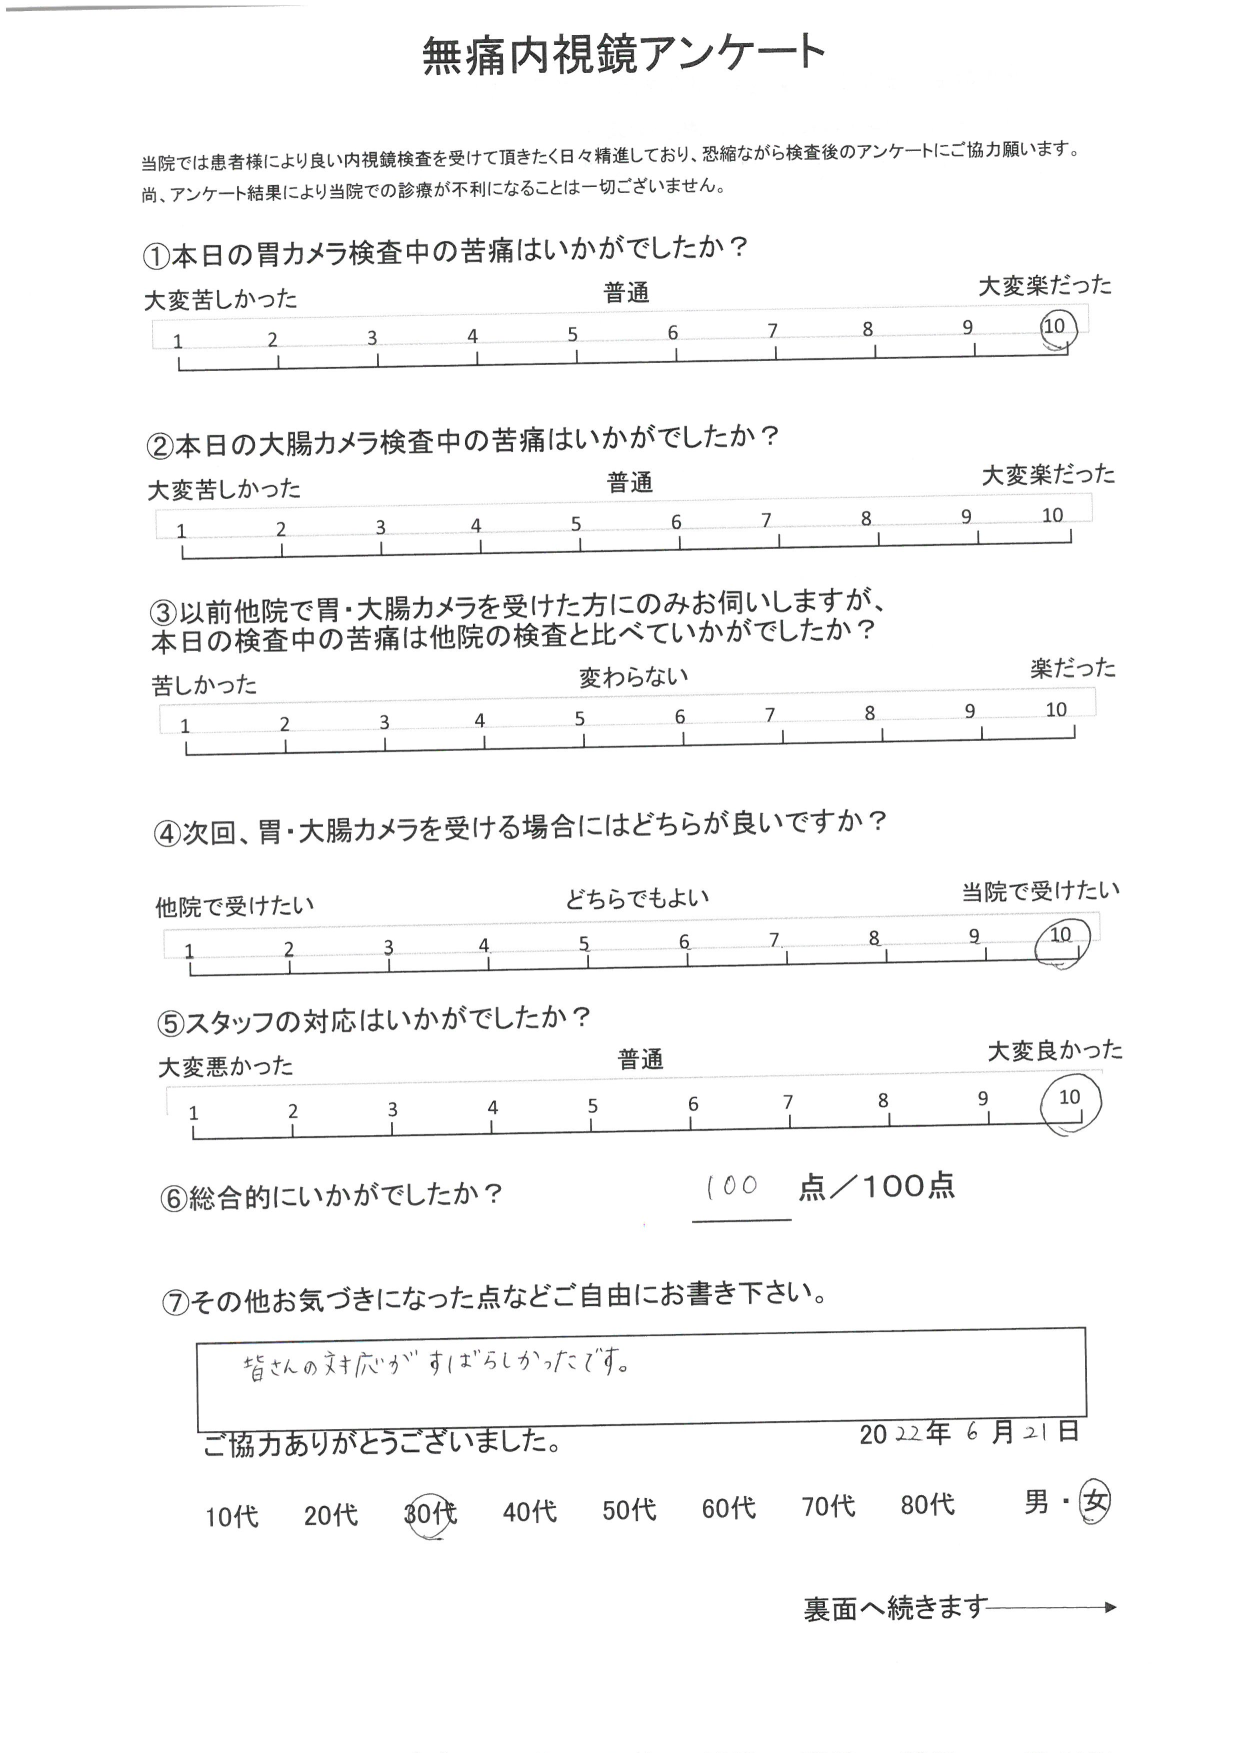 無痛内視鏡アンケート
当院では患者様により良い内視鏡検査を受けて頂きたく日々精進しており、恐縮ながら検査後のアンケートにご協力願います。
尚、アンケート結果により当院での診療が不利になることは一切ございません。
①本日の胃カメラ検査中の苦痛はいかがでしたか？
大変苦しかった 普通 大変楽だった
1 2 3 4 5 6 7 8 9 10
②本日の大腸カメラ検査中の苦痛はいかがでしたか？
大変苦しかった 普通 大変楽だった
1 2 3 4 5 6 7 8 9 10
③以前他院で胃・大腸カメラを受けた方にのみお伺いしますが、
本日の検査中の苦痛は他院の検査と比べていかがでしたか？
苦しかった 変わらない 楽だった
1 2 3 4 5 6 7 8 9 10
④次回、胃・大腸カメラを受ける場合にはどちらが良いですか？
他院で受けたい どちらでもよい 当院で受けたい
1 2 3 4 5 6 7 8 9 10
⑤スタッフの対応はいかがでしたか？
大変悪かった 普通 大変良かった
1 2 3 4 5 6 7 8 9 10
⑥総合的にいかがでしたか？ 100 点／100点
⑦その他お気づきになった点などご自由にお書き下さい。
皆さんの対応がすばらしかったです。
ご協力ありがとうございました。 2022年 6月 21日
10代 20代 30代 40代 50代 60代 70代 80代 男・女
裏面へ続きます